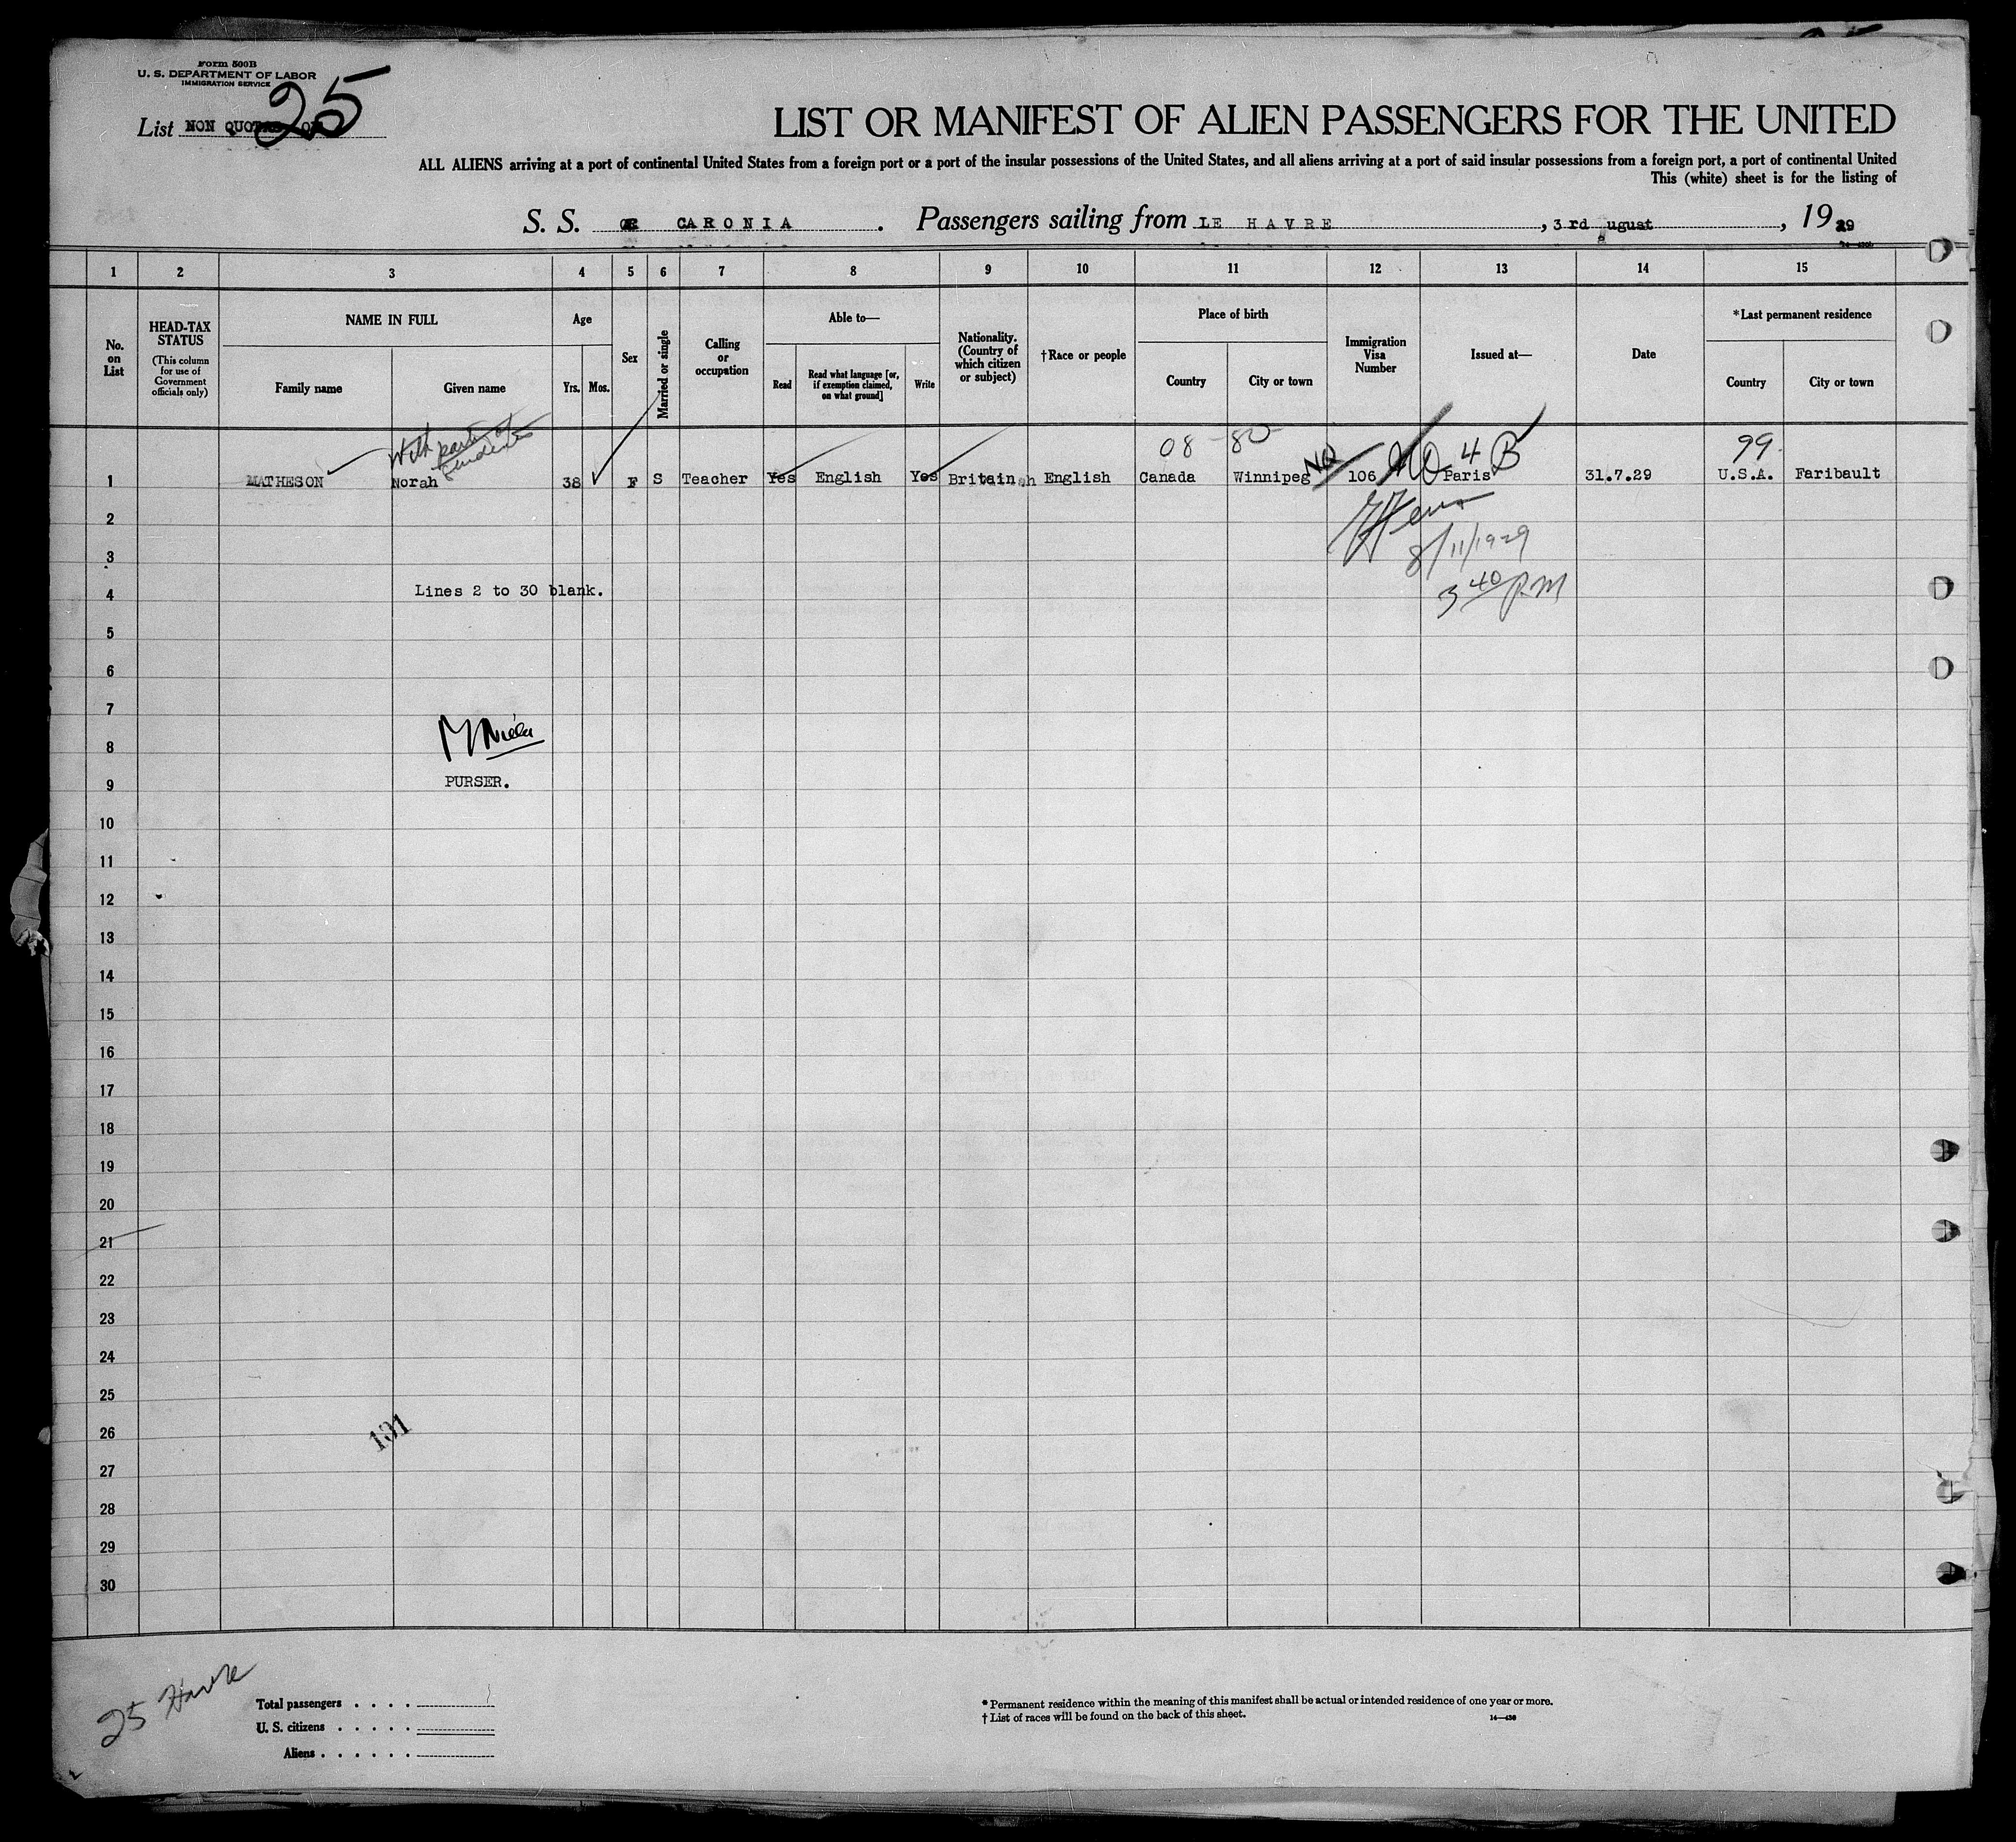 Form 500B
U. S. DEPARTMENT OF LABOR
IMMIGRATION SERVICE
List NON QUOTA 25
LIST OR MANIFEST OF ALIEN PASSENGERS FOR THE UNITED
ALL ALIENS arriving at a port of continental United States from a foreign port or a port of the insular possessions of the United States, and all aliens arriving at a port of said insular possessions from a foreign port, a port of continental United
This (white) sheet is for the listing of
S. S. CARONIA . Passengers sailing from LE HAVRE , 3rd August , 1929
1 2 3 4 5 6 7 8 9 10 11 12 13 14 15
No. on List
HEAD-TAX STATUS
(This column for use of Government officials only)
NAME IN FULL
Family name
Given name
Age
Yrs. Mos.
Sex
Married or single
Calling or occupation
Able to—
Read
Read what language [or, if exemption claimed, on what ground]
Write
Nationality. (Country of which citizen or subject)
†Race or people
Place of birth
Country
City or town
Immigration Visa Number
Issued at—
Date
*Last permanent residence
Country
City or town
With party of students
08-80 NQ NO 4 B 99
1 MATHESON Norah 38 F S Teacher Yes English Yes Britain h English Canada Winnipeg 106 Paris 31.7.29 U.S.A. Faribault
2
8/11/1929
3
3 40 P.M
Lines 2 to 30 blank.
4
5
6
7
8
PURSER.
9
10
11
12
13
14
15
16
17
18
19
20
21
22
23
24
25
26
191
27
28
29
30
25 Havre
Total passengers . . . .
U. S. citizens . . . . .
Aliens . . . . . .
* Permanent residence within the meaning of this manifest shall be actual or intended residence of one year or more.
† List of races will be found on the back of this sheet.
14—436